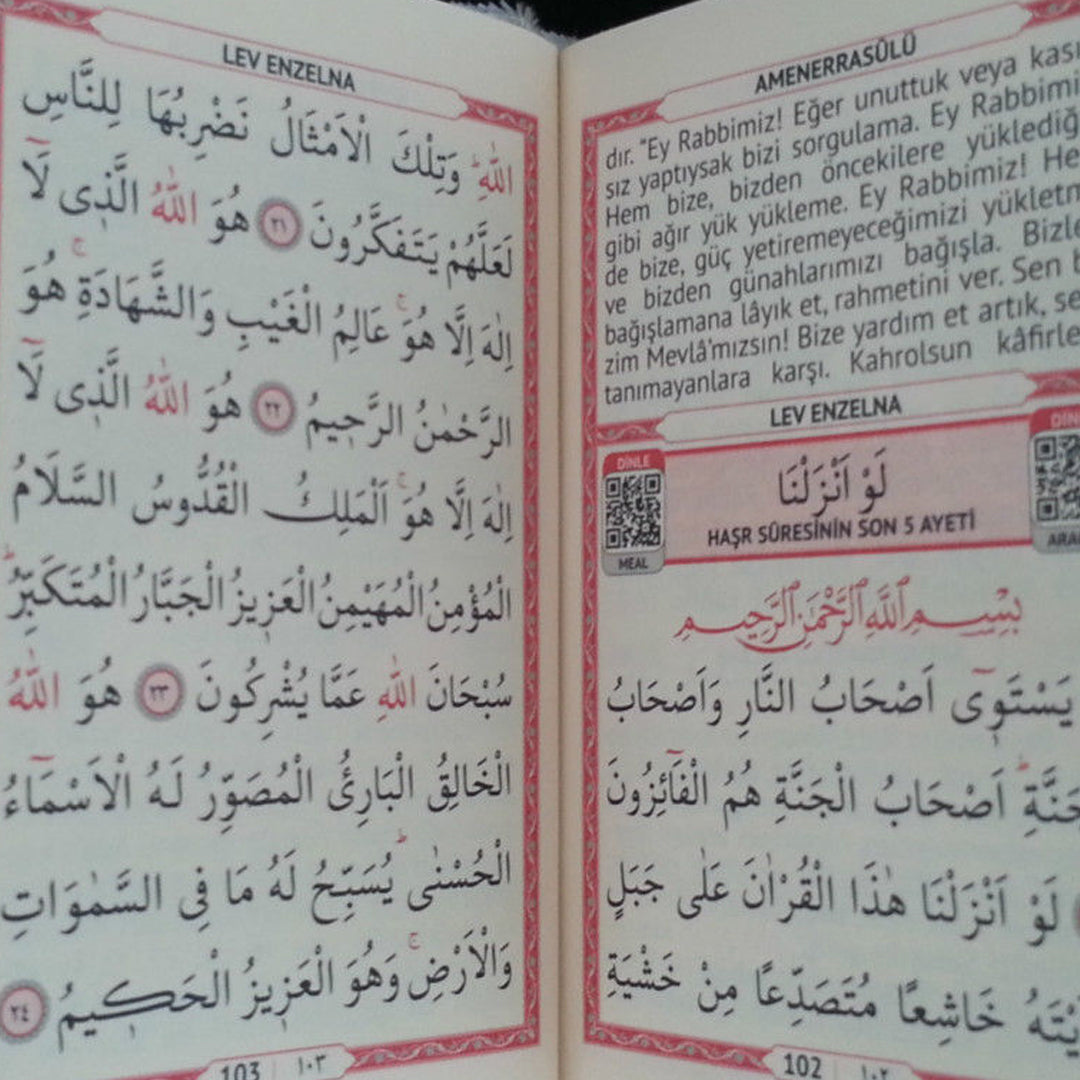 AMENERRASÛLÜ
dır. "Ey Rabbimiz! Eğer unuttuk veya
sız yaptıysak bizi sorgulama. Ey
Hem bize, bizden öncekilere
gibi ağır yük yükleme. Ey Rabbimiz!
de bize, güç yetiremeyeceğimizi
ve bizden günahlarımızı bağışla.
bağışlamana lâyık et, rahmetini ver. Sen
zim Mevlâ'mızsın! Bize yardım et artık,
tanımayanlara karşı. Kahrolsun
LEV ENZELNA
DİNLE
لَوْ اَنْزَلْنَا
HAŞR SÛRESİNİN SON 5 AYETİ
MEAL
بِسْمِ ٱللَّهِ ٱلرَّحْمَٰنِ ٱلرَّحِيمِ
يَسْتَوٖٓى اَصْحَابُ النَّارِ وَاَصْحَابُ
اَصْحَابُ الْجَنَّةِ هُمُ الْفَٓائِزُونَ
لَوْ اَنْزَلْنَا هٰذَا الْقُرْاٰنَ عَلٰى جَبَلٍ
خَاشِعًا مُتَصَدِّعًا مِنْ خَشْيَةِ
102 ١٠٢
LEV ENZELNA
اللّٰهِؕ وَتِلْكَ الْاَمْثَالُ نَضْرِبُهَا لِلنَّاسِ
لَعَلَّهُمْ يَتَفَكَّرُونَ ٢١ هُوَ اللّٰهُ الَّذٖى لَٓا
اِلٰهَ اِلَّا هُوَۚ عَالِمُ الْغَيْبِ وَالشَّهَادَةِۚ هُوَ
الرَّحْمٰنُ الرَّحٖيمُ ٢٢ هُوَ اللّٰهُ الَّذٖى لَٓا
اِلٰهَ اِلَّا هُوَۚ اَلْمَلِكُ الْقُدُّوسُ السَّلَامُ
الْمُؤْمِنُ الْمُهَيْمِنُ الْعَزٖيزُ الْجَبَّارُ الْمُتَكَبِّرُؕ
سُبْحَانَ اللّٰهِ عَمَّا يُشْرِكُونَ ٢٣ هُوَ اللّٰهُ
الْخَالِقُ الْبَارِئُ الْمُصَوِّرُ لَهُ الْاَسْمَٓاءُ
الْحُسْنٰىؕ يُسَبِّحُ لَهُ مَا فِى السَّمٰوَاتِ
وَالْاَرْضِۚ وَهُوَ الْعَزٖيزُ الْحَكٖيمُ ٢٤
103 ١٠٣